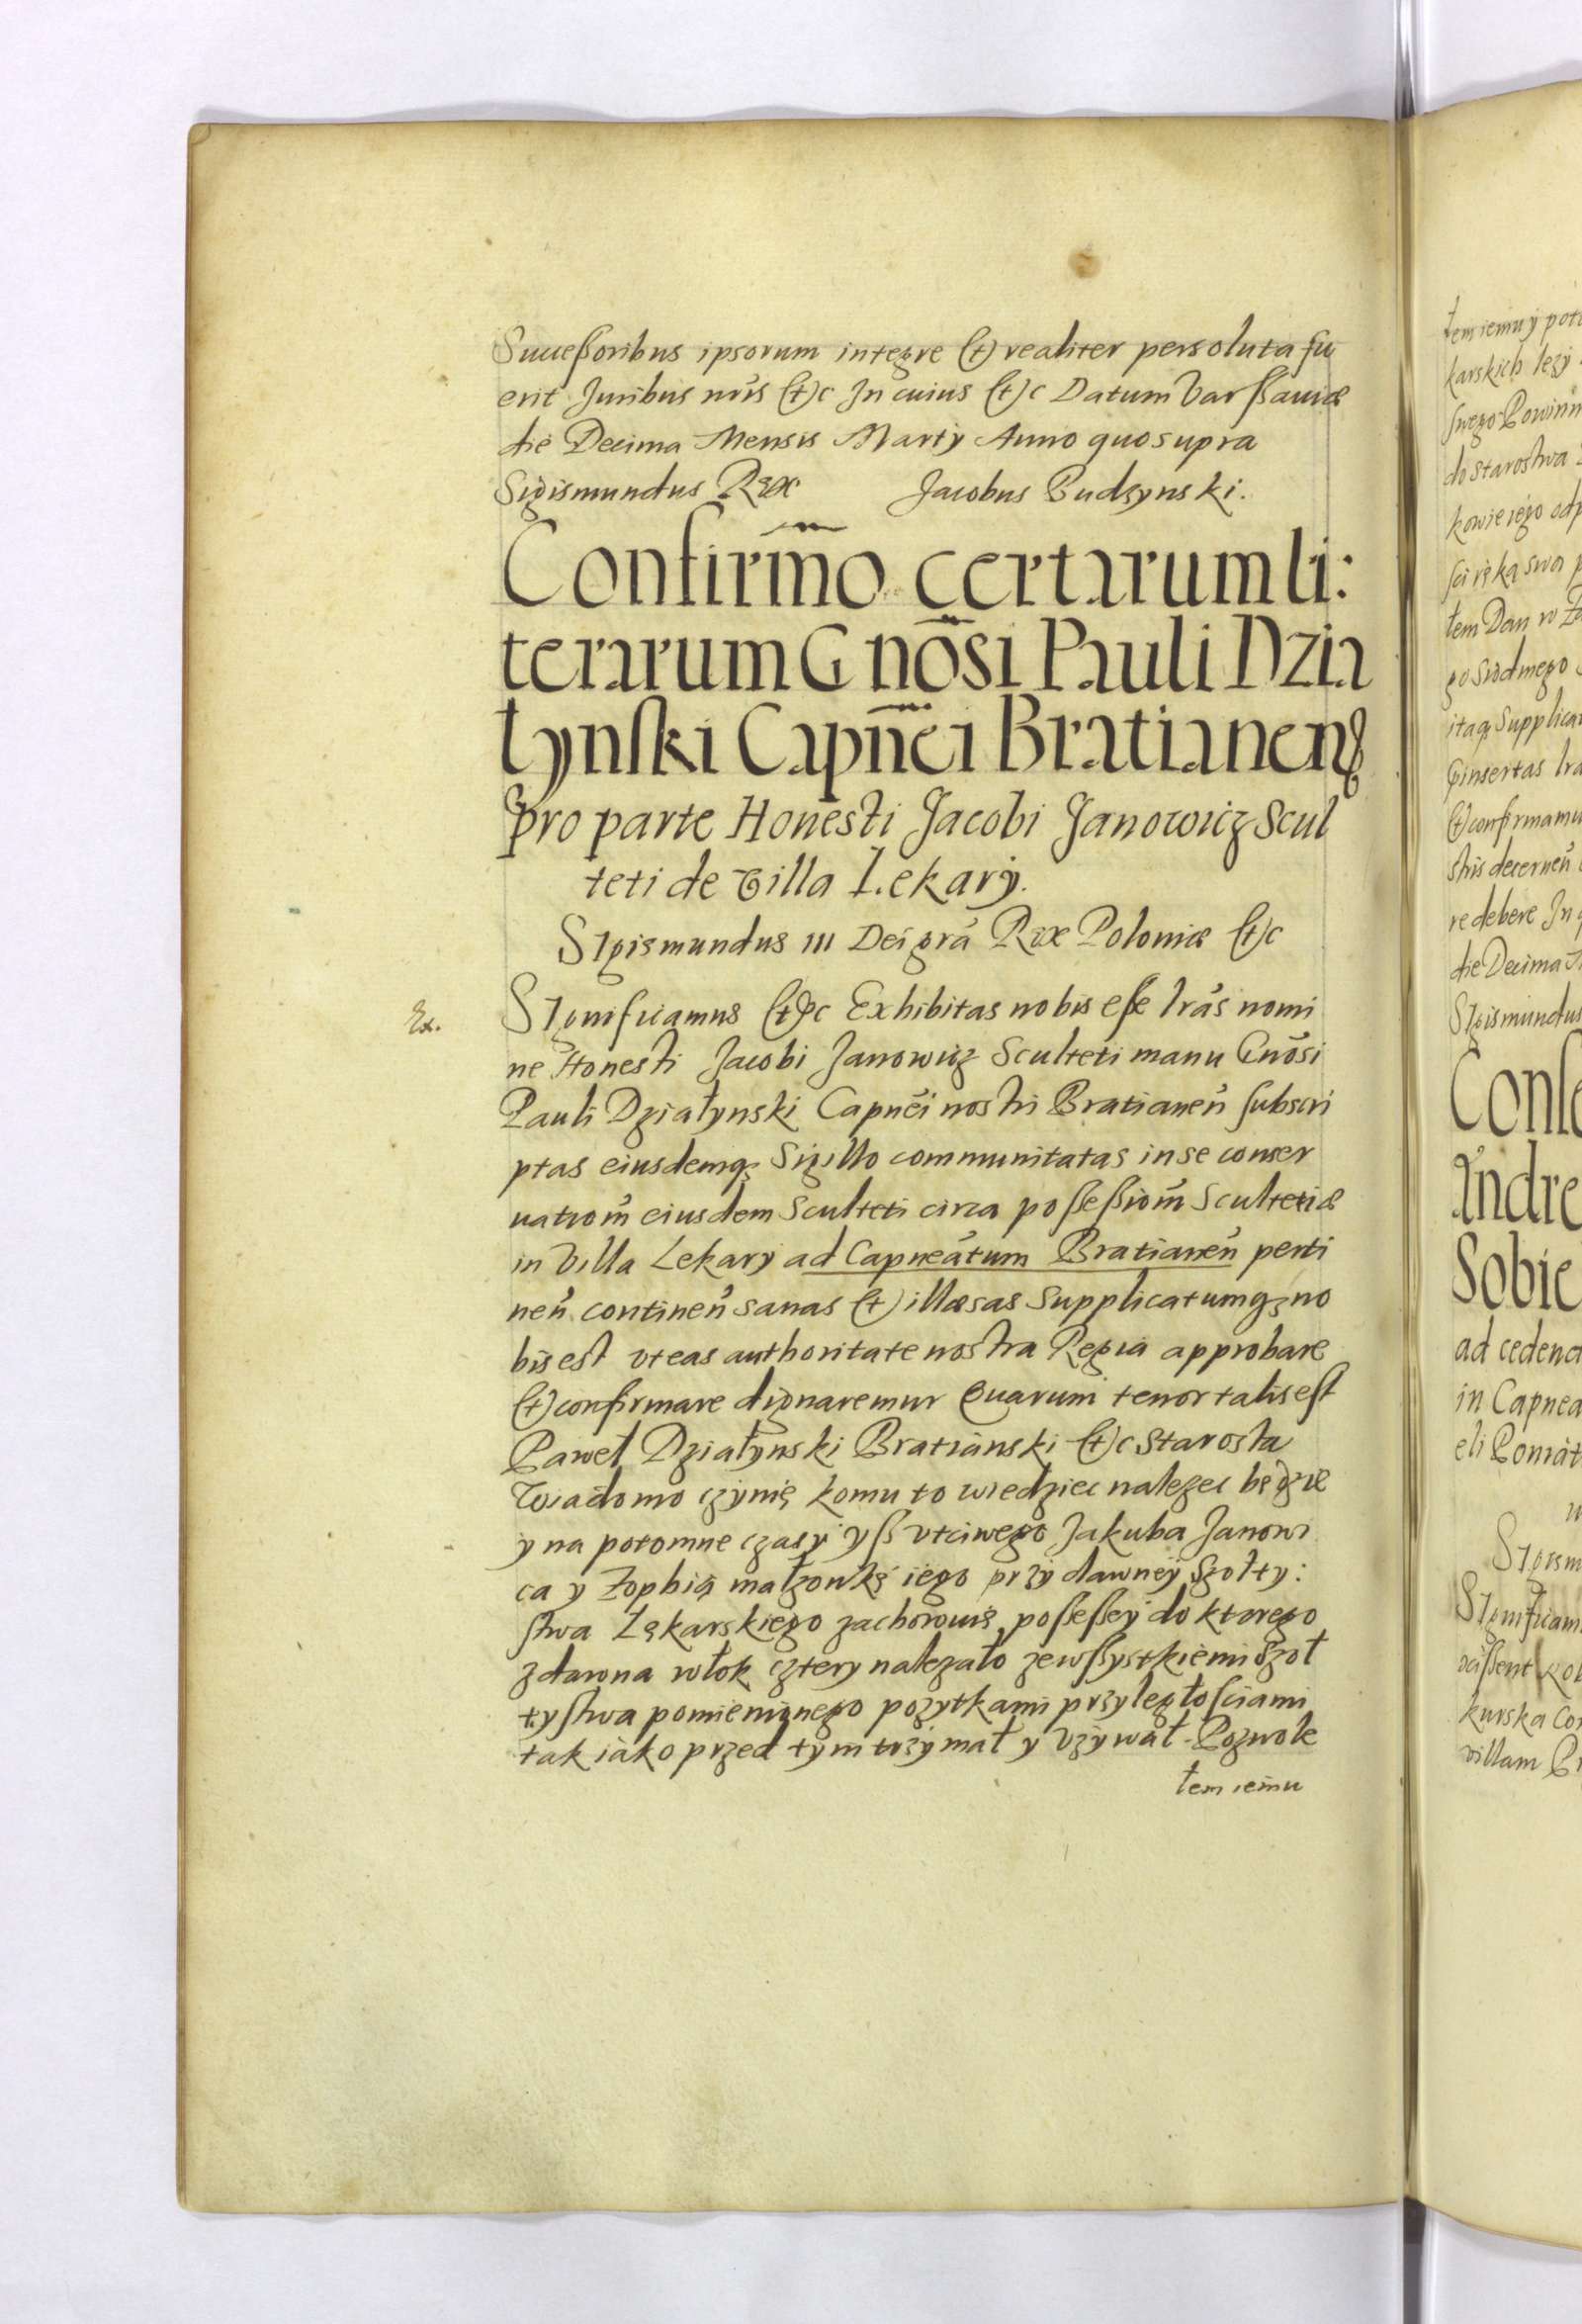 Successoribus ipsorum integre et realiter persoluta fu
erit Juribus nr̃is etc In cuius etc Datum Varssauiæ
die Decima Mensis Martÿ Anno quo supra
Sigismundus Rex Jacobus Budzynski.
Confirm̃o certarum li:
terarum Gnõsi Pauli Dzia
łynski Capnẽi Bratianen̄
pro parte Honesti Jacobi Janowicz Scul
teti de Villa Lekarÿ.
Sigismundus III Dei grã Rex Poloniæ etc
Ex.
Significamus etc Exhibitas nobis esse lr̃as nomi
ne Honesti Jacobi Janowicz Sculteti manu Gnõsi
Pauli Działynski Capnẽi nostri Bratianeñ subscri
ptas eiusdemq; Sigillo communitatas in se conser
uationm̃ eiusdem Sculteti circa possessionm̃ Scultetiæ
in Villa Lekary ad Capneãtum Bratianeñ perti
neñ contineñ sanas et illæsas Supplicatumq; no
bis est vt eas authoritate nostra Regia approbare
et confirmare dignaremur Quarum tenor talis est
Paweł Działynski Bratiánski etc Starosta
Wiadomo czynię komu to wiedziec nalezec bedzie
y na potomne czasy yß vtciwego Jakuba Janowi
ca y Zophią małzonkę iego przy dawney Szołty:
stwa Lękarskiego zachowuię possessey do ktorego
z dawna włok cztery nalezało ze wssystkiemi Szoł
tystwa pomienionego pozytkami przyległosciami
tak iáko przed tym trzymał y vzywał. Pozwole
łem iemu
łem iemu y poto
karskich lezy
swego Powinn
do Starostwa
kowie iego odp
sci ręką swą p
łem Dan w Za
go Siodmego
itaq; Supplica
insertas lr̃a
et confirmamu
stris decerneñ
re debere In q
die Decima
Sigismundus
Conse
Andre
Sobie
ad cedend
in Capnea
eli Poniat
Sigism
Significam
kurska Con
villam Br